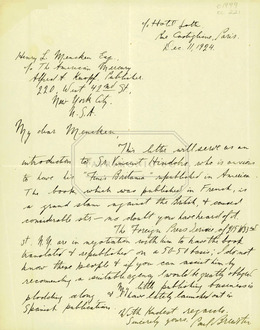 c/o Hotel Lotti
Rue Castiglione, Paris.
Dec. 11, 1924.
Henry L. Mencken Esq
c/o The American Mercury
Alfred A Knopf Publisher
220, West 42nd St,
New York City.
U.S.A.
My dear Mencken,
This letter will serve as an
introduction to Sr. Vincent, who is anxious
to have his republished in America
The book which was published in French, is
a grand slam against the, & caused
considerable stir - no doubt you have heard of it.
The Foreign Press Service of
St. N.Y. are in negotiation with him to have the book
translated & republished on a 50-50 basis, I do not
know these people & if you can assist him by
recommending a suitable agency I would be greatly obliged
My little publishing business is
plodding along & I have lately launched out in
Spanish publication.
With kindest regards,
Sincerely yours,
Paul